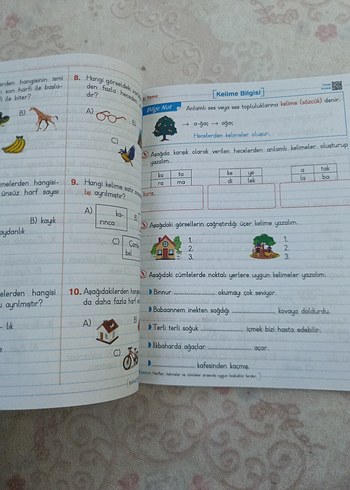 erden hangisinin ismi
son harfi ile başla-
fi ile biter?
B)
8. Hangi görseldeki
den fazla heceden
dir?
A)
B)
C)
melerden hangisi-
ünsüz harf sayısı
B) kayık
aydanlık
9. Hangi kelime satır
le ayrılmıştır?
A) ka-
rınca
B)
C) Çam
bel
elerden hangisi
ayrılmıştır?
- lik
10. Aşağıdakilerden
da daha fazla harf
A)
B)
C)
Kelime Bilgisi
Bilge Not
Anlamlı ses veya ses topluluklarına kelime (sözcük) denir.
→ a-ğaç → ağaç
Hecelerden kelimeler oluşur.
Aşağıda karışık olarak verilen hecelerden anlamlı kelimeler oluşturup
yazalım.
ka ta
ra ma
ke ye
di lek
a tak
la ba
Aşağıdaki görsellerin çağrıştırdığı üçer kelime yazalım.
1. 1.
2. 2.
3. 3.
Aşağıdaki cümlelerde noktalı yerlere uygun kelimeler yazalım.
Binnur okumayı çok seviyor.
Babaannem inekten sağdığı kovaya doldurdu.
Terli terli soğuk içmek bizi hasta edebilir.
İlkbaharda ağaçlar açar.
kafesinden kaçmış.